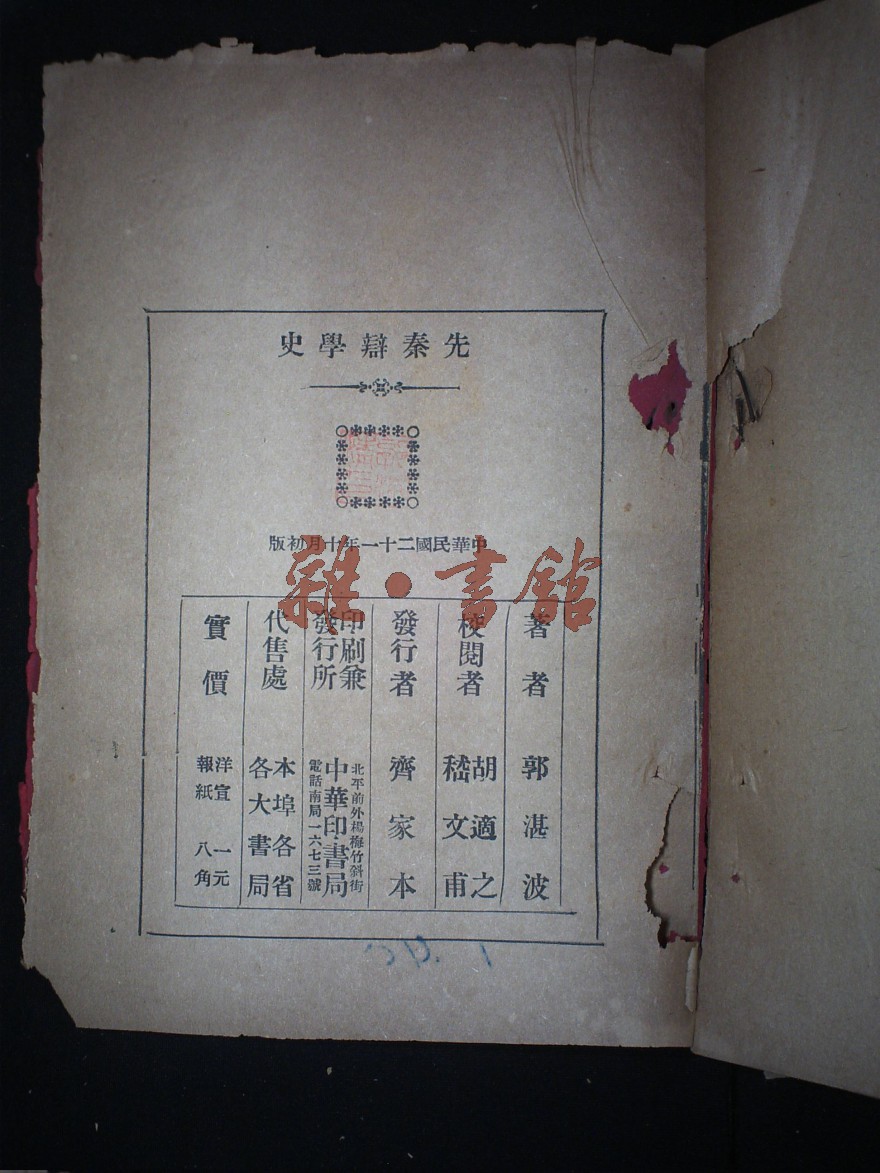 先秦辯學史
中華民國二十一年十月初版
著者 郭湛波
校閱者 胡適之 嵇文甫
發行者 齊家本
印刷兼發行所 北平前外楊梅竹斜街 中華印書局 電話南局一六七三號
代售處 本埠各省各大書局
實價 洋宣 一元 報紙 八角
雜·書館